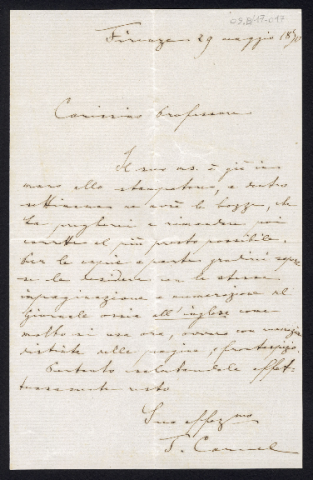 03.B.17.017
Firenze 29 maggio 18
Carissimo Professore
Il suo ms. è già in
mano allo stampatore, e dentro
settimana avrà le bozze, che
la pregherei a rimandar poi
corrette al più presto possibile.
Per le copie a parte gradirei sapere
se le desidera con la stessa
impaginazione e numerazione del
Giornale ossia all'inglese come
molto si usa ora, ovvero con
distinte nelle pagine, e frontespizio.
Pertanto salutandola affet-
tuosamente resto
Suo affez.mo
T. Caruel